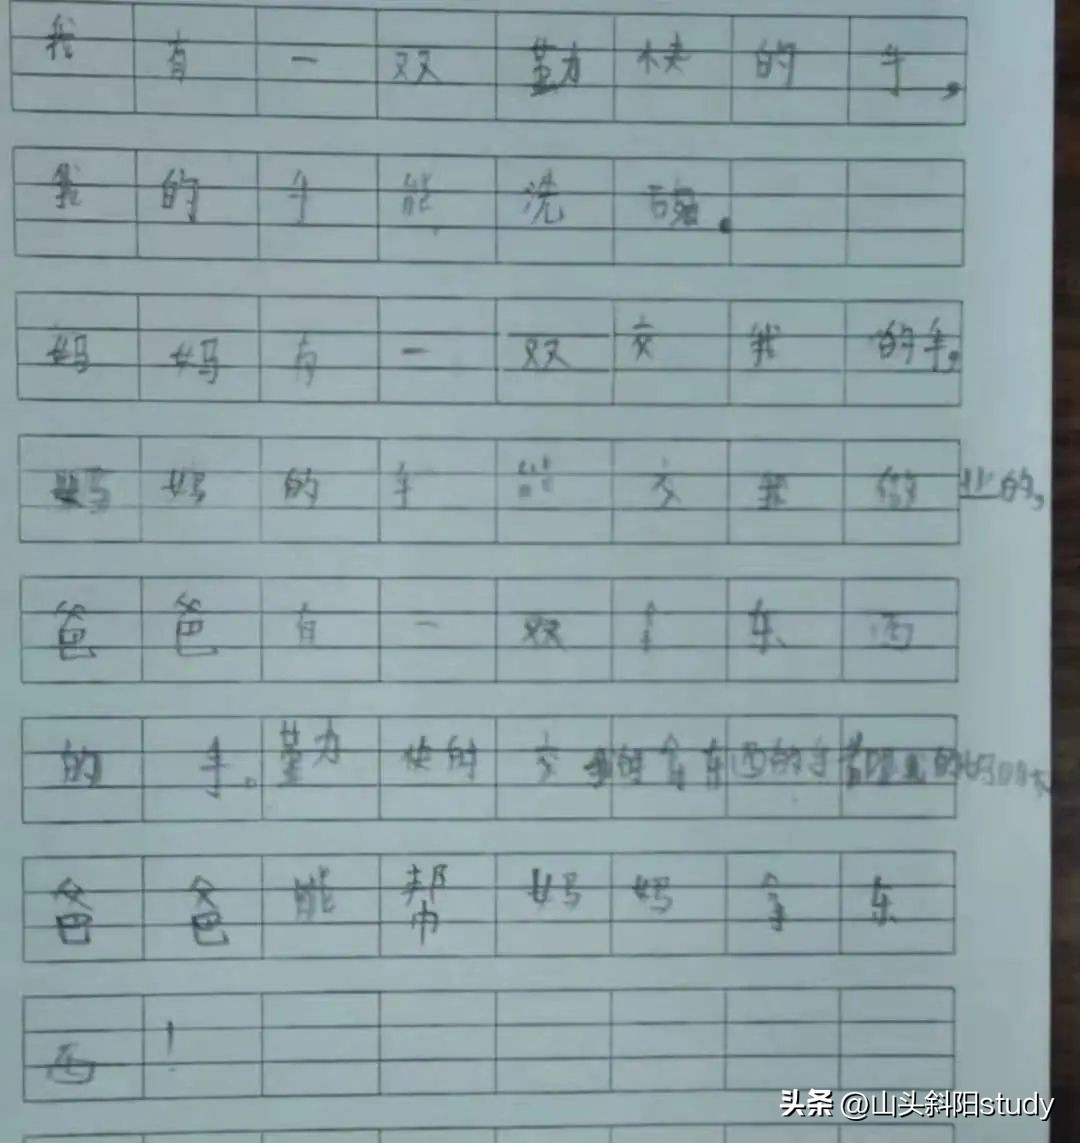 我有一双勤快的手,
我的手能洗碗.
妈妈有一双交我的手,
妈妈的手能交我做业的,
爸爸有一双拿东西
的手。勤快的交我的拿东西的手都是我的
爸爸能帮妈妈拿东
西!
头条 @山头斜阳study